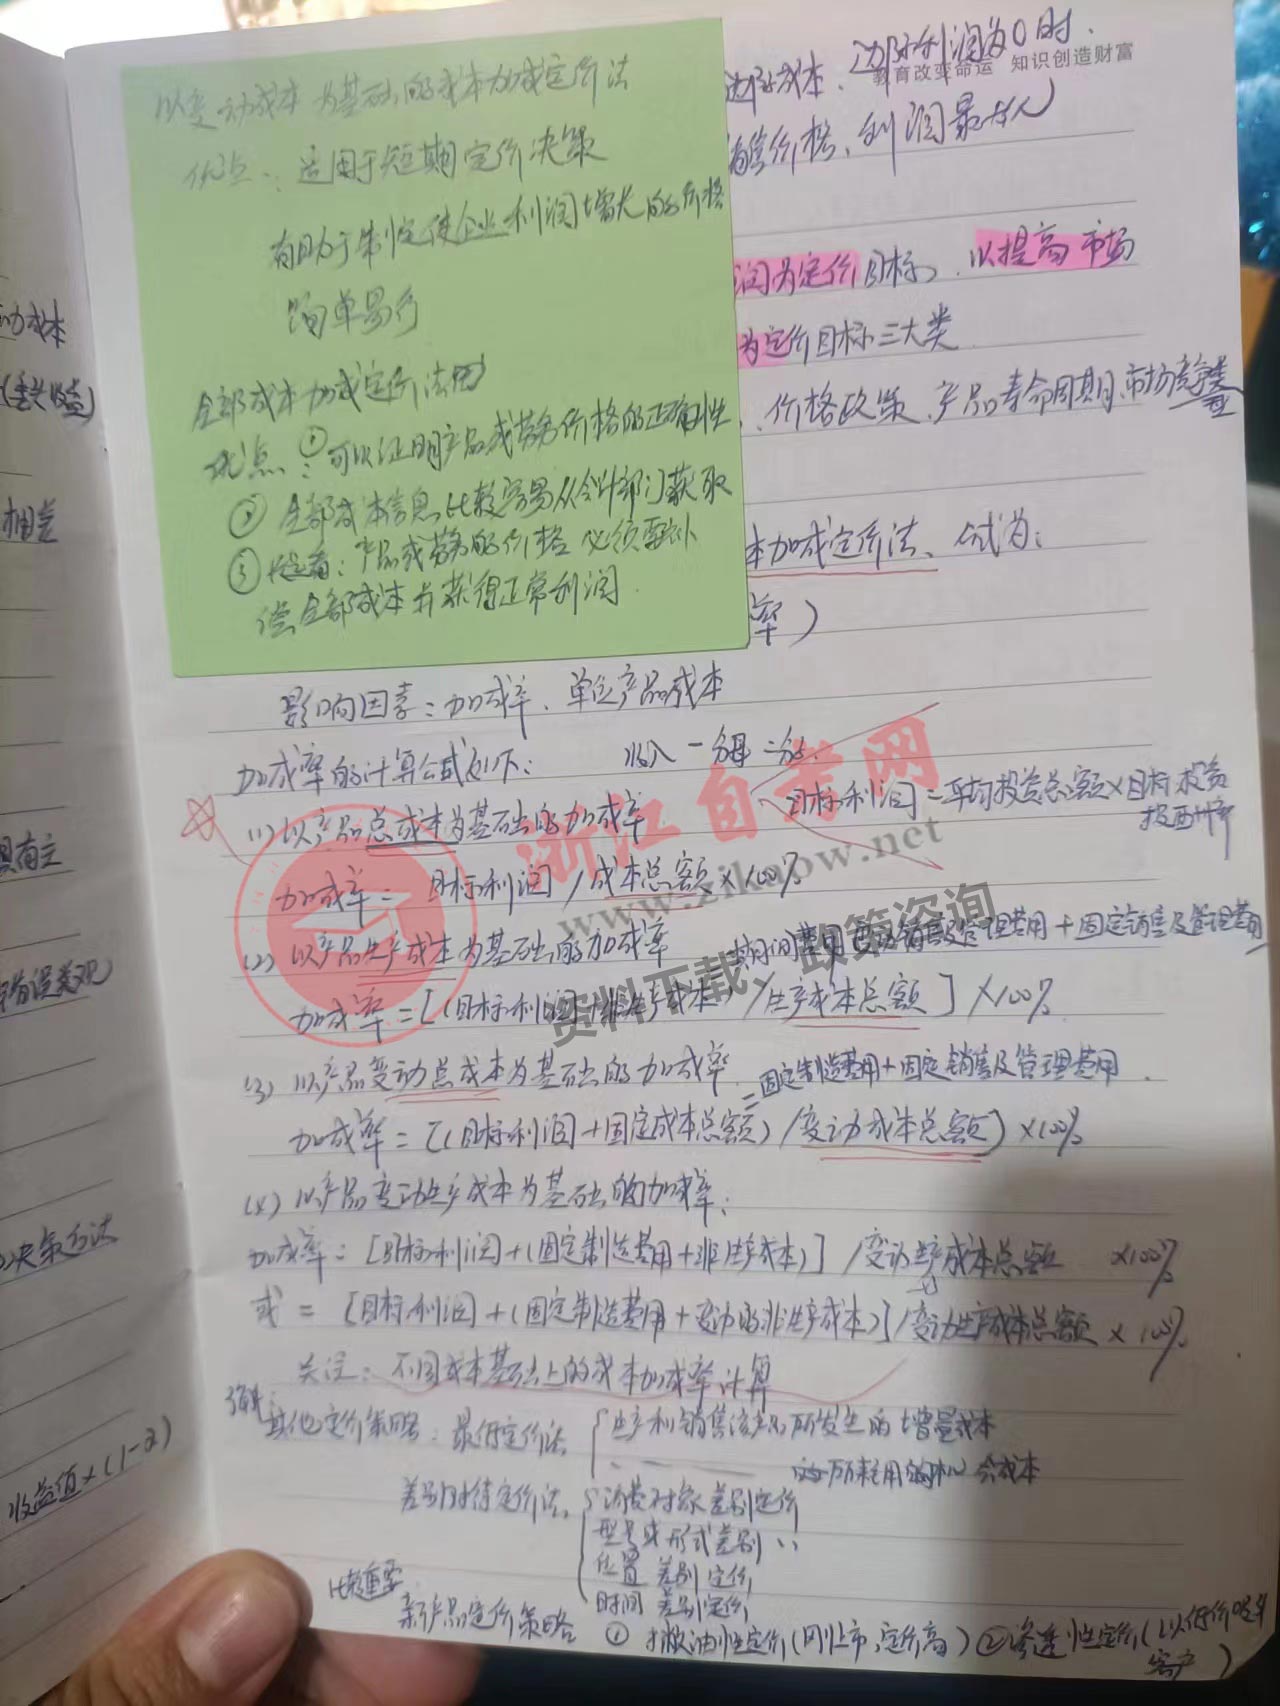 以变动成本为基础的成本加成定价法
优点：适用于短期定价决策
有助于制定使企业利润增长的价格
简单易行
全部成本加成定价法
优点：①可以证明产品或劳务价格的正确性
②全部成本信息比较容易从会计部门获取
③ 产品或劳务的价格必须要补
偿全部成本并获得正常利润
边际成本、边际利润为0时.
教育改变命运 知识创造财富
销售价格、利润最大)
润为定价目标、以提高市场
为定价目标三大类
、价格政策、产品寿命周期、市场竞争类型
本加成定价法、公式为：
率）
影响因素：加成率、单位产品成本
加成率的计算公式如下：
目标利润=平均投资总额×目标投资
报酬率
(1)以产品总成本为基础的加成率
加成率= 目标利润/成本总额×100%
(2)以产品生产成本为基础的加成率
=期间费用 变动销售及管理费用+固定销售及管理费用
加成率=[(目标利润+非生产成本)/生产成本总额]×100%
(3)以产品变动总成本为基础的加成率
=固定制造费用+固定销售及管理费用
加成率=[(目标利润+固定成本总额)/变动成本总额]×100%
(4)以产品变动生产成本为基础的加成率：
加成率=[目标利润+(固定制造费用+非生产成本)]/变动生产成本总额 ×100%
或 = [目标利润+(固定制造费用+变动的非生产成本)]/变动生产成本总额 ×100%
关注：不同成本基础上的成本加成率计算
其他定价策略：最低定价法 生产和销售该产品所发生的增量成本
所耗用的 机会成本
差别对待定价法 消费对象差别定价
型号或形式差别〃
位置差别定价
时间差别定价
比较重要
新产品定价策略 ①撇油性定价(刚上市,定价高) ②渗透性定价(以低价吸引
客户)
动成本
相差
决策方法
收益值×(1-α)
浙江自考网
www.zikaow.net
资料下载、政策咨询